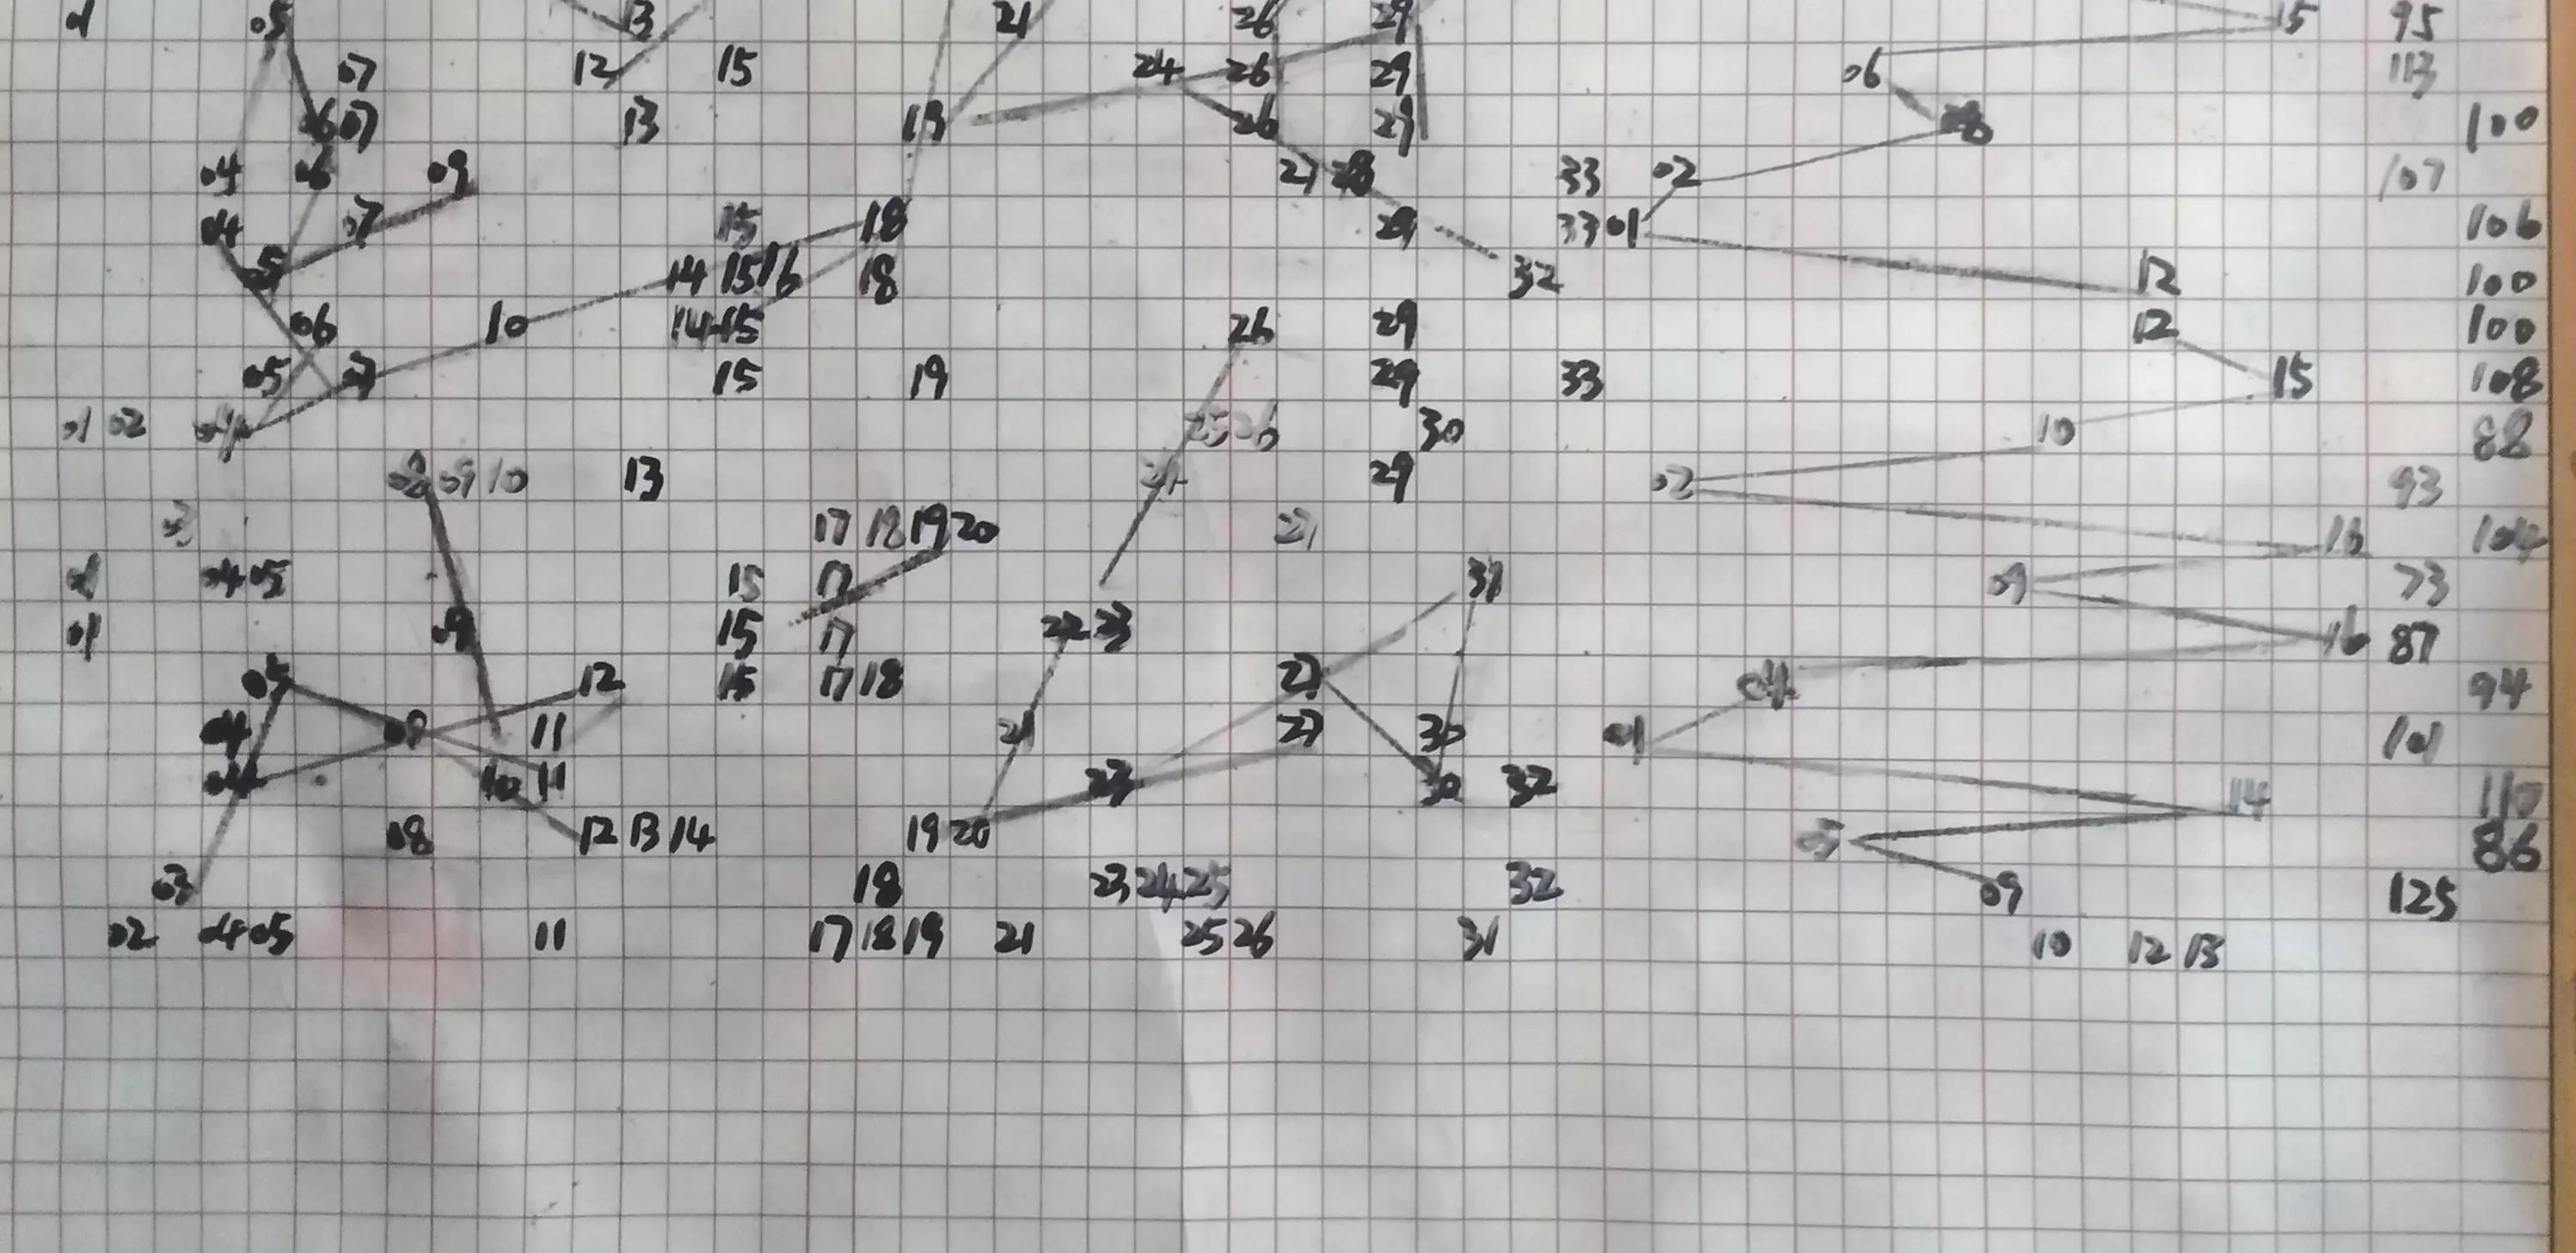 05 13 21 26 29 15 95
07 12 15 24 26 29 06 113
06 07 13 19 26 29 08 100
04 06 09 27 28 33 02 107
04 07 15 18 29 33 01 106
05 14 15 16 18 32 12 100
06 10 14 15 26 29 12 100
05 07 15 19 29 33 15 108
01 02 04 25 26 30 10 88
08 09 10 13 24 29 02 93
03 17 18 19 20 27 16 104
01 04 05 15 17 31 09 73
01 09 15 17 22 23 16 87
05 12 15 17 18 27 04 94
04 08 11 21 27 30 01 101
04 10 11 23 30 32 14 110
08 12 13 14 19 20 05 86
03 18 23 24 25 32 09 125
02 04 05 11 17 18 19 21 25 26 31 10 12 13